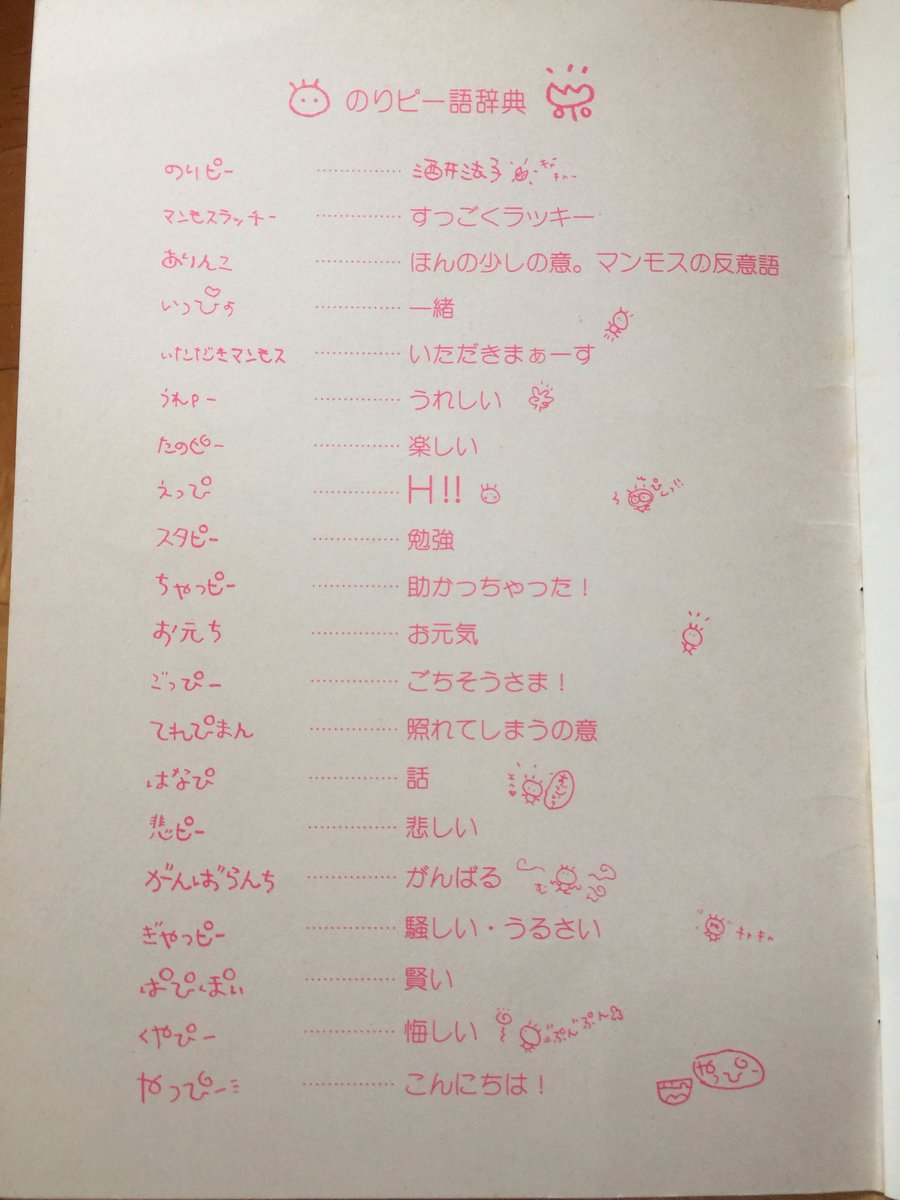 のりピー語辞典
のりピー ‥‥‥‥‥ 酒井法子 キャーキャー
マンモスラッチー ‥‥‥‥‥ すっごくラッキー
ありんこ ‥‥‥‥‥ ほんの少しの意。マンモスの反意語
いっぴょ ‥‥‥‥‥ 一緒
いただきマンモス ‥‥‥‥‥ いただきまぁーす
うれPー ‥‥‥‥‥ うれしい
たのピー ‥‥‥‥‥ 楽しい
えっぴ ‥‥‥‥‥ H!!
スタピー ‥‥‥‥‥ 勉強
ちゃっピー ‥‥‥‥‥ 助かっちゃった!
お元ち ‥‥‥‥‥ お元気
ごっぴー ‥‥‥‥‥ ごちそうさま!
てれぴまん ‥‥‥‥‥ 照れてしまうの意
はなぴ ‥‥‥‥‥ 話
悲ピー ‥‥‥‥‥ 悲しい
がんばらんち ‥‥‥‥‥ がんばる む
ぎゃっピー ‥‥‥‥‥ 騒しい・うるさい キャキャ
ぱぴぽい ‥‥‥‥‥ 賢い
くやぴー ‥‥‥‥‥ 悔しい ぷんぷん
やっぴー ‥‥‥‥‥ こんにちは! やっぴー